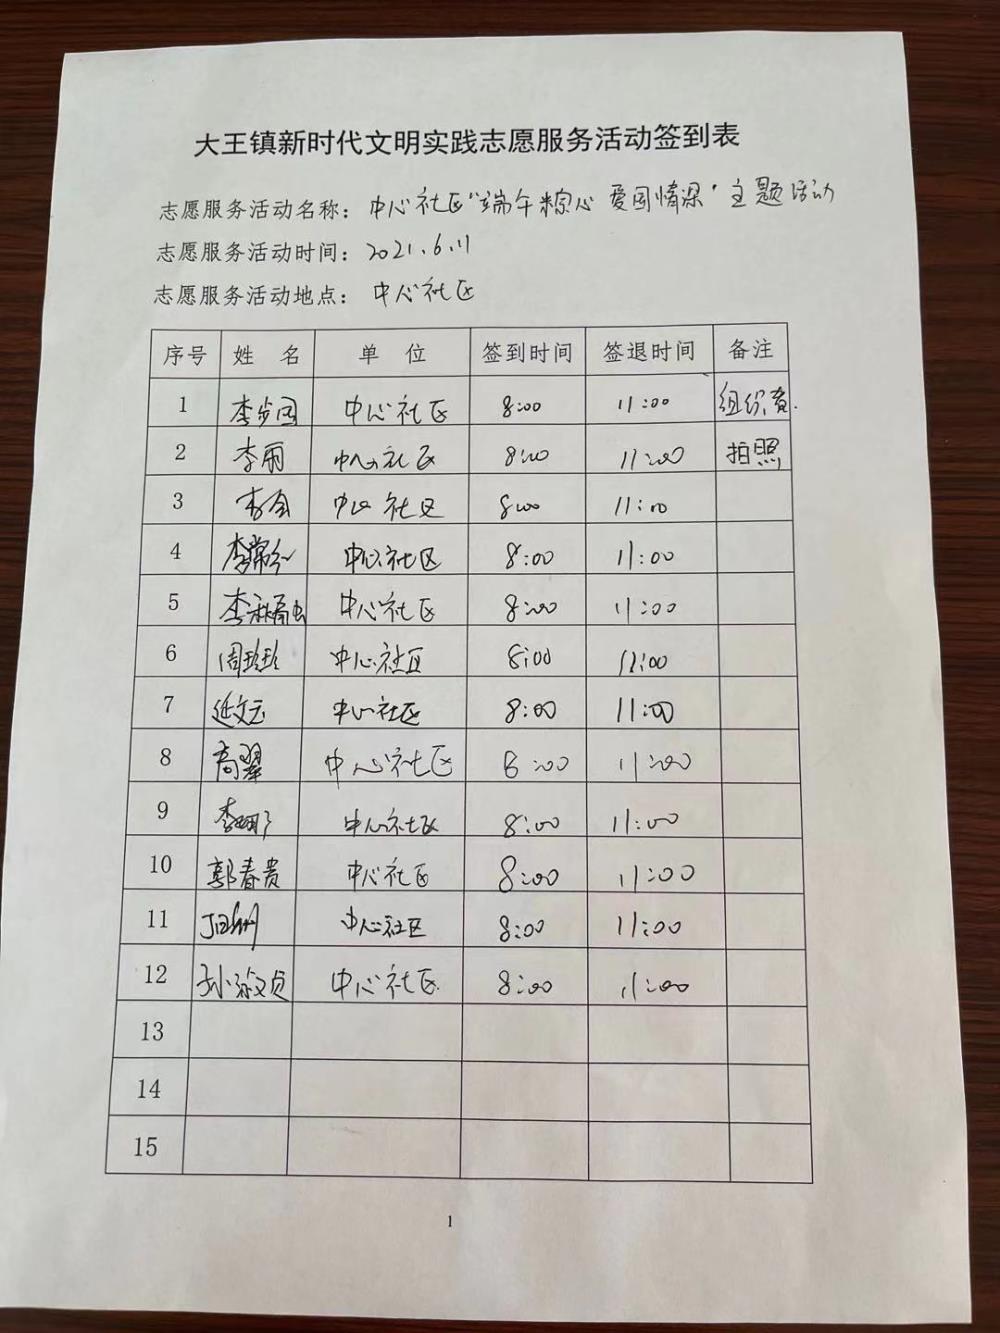 大王镇新时代文明实践志愿服务活动签到表
志愿服务活动名称：中心社区“端午粽心 爱国情深”主题活动
志愿服务活动时间：2021.6.11
志愿服务活动地点：中心社区
序号 姓 名 单 位 签到时间 签退时间 备注
1 李步国 中心社区 8:00 11:00 组织者.
2 李丽 中心社区 8:00 11:00 拍照
3 李会 中心社区 8:00 11:00
4 中心社区 8:00 11:00
5 中心社区 8:00 11:00
6 周珍珍 中心社区 8:00 11:00
7 延文玉 中心社区 8:00 11:00
8 高翠 中心社区 8:00 11:00
9 中心社区 8:00 11:00
10 郭春贵 中心社区 8:00 11:00
11 中心社区 8:00 11:00
12 孙淑贞 中心社区 8:00 11:00
13
14
15
1